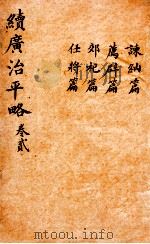 諫納篇
薦篇
郊祀篇
任將篇
續廣治平略 卷貳